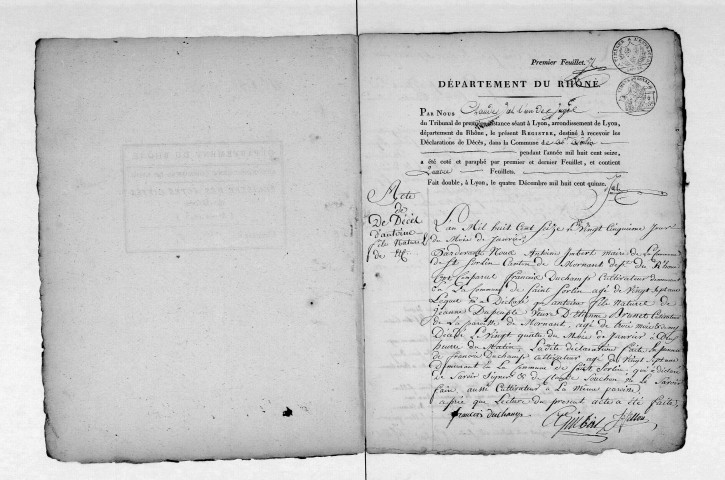 Premier Feuillet.
DÉPARTEMENT DU RHÔNE.
PAR NOUS Claude juge
du Tribunal de première instance séant à Lyon, arrondissement de Lyon,
département du Rhône, le présent REGISTRE, destiné à recevoir les
Déclarations de Décès, dans la Commune de St Sorlin
pendant l'année mil huit cent seize,
a été coté et paraphé par premier et dernier Feuillet, et contient
Feuillets.
Fait double, à Lyon, le quatre Décembre mil huit cent quinze.
Acte
de
De Décès
d'antoine
fils Naturel
de
L'an Mil huit Cent Seize le Vingt Cinquieme Jour
du Mois de Janvier
Pardevant Nous Antoine Imbert maire de la Commune
de St Sorlin Canton de Mornant dept du Rhône
Est Comparu francois Duchamp Cultivateur demeurant
en La Commune de Saint Sorlin agé de Vingt Sept ans
Lequel m'a Déclaré qu'antoine fils Naturel de
Jeanne Dupeuple Veuve D'Etienne Brunet
de La paroisse de Mornant, agé de trois mois
Décédé Le Vingt quatre du Mois de Janvier à
heure du Matin, Ladite déclaration faite en présence
de francois Duchamp Cultivateur agé de Vingt Sept ans
demeurant en La Commune de Saint Sorlin qui a déclaré
Savoir Signer & de Claude Souchon ne le Savoir
faire, aussi Cultivateur à La même paroisse
après que Lecture du present acte a été faite,
francois duchamp Imbert